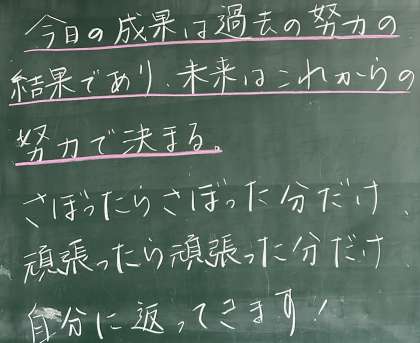 今日の成果は過去の努力の
結果であり、未来はこれからの
努力で決まる。
さぼったらさぼった分だけ、
頑張ったら頑張った分だけ
自分に返ってきます!